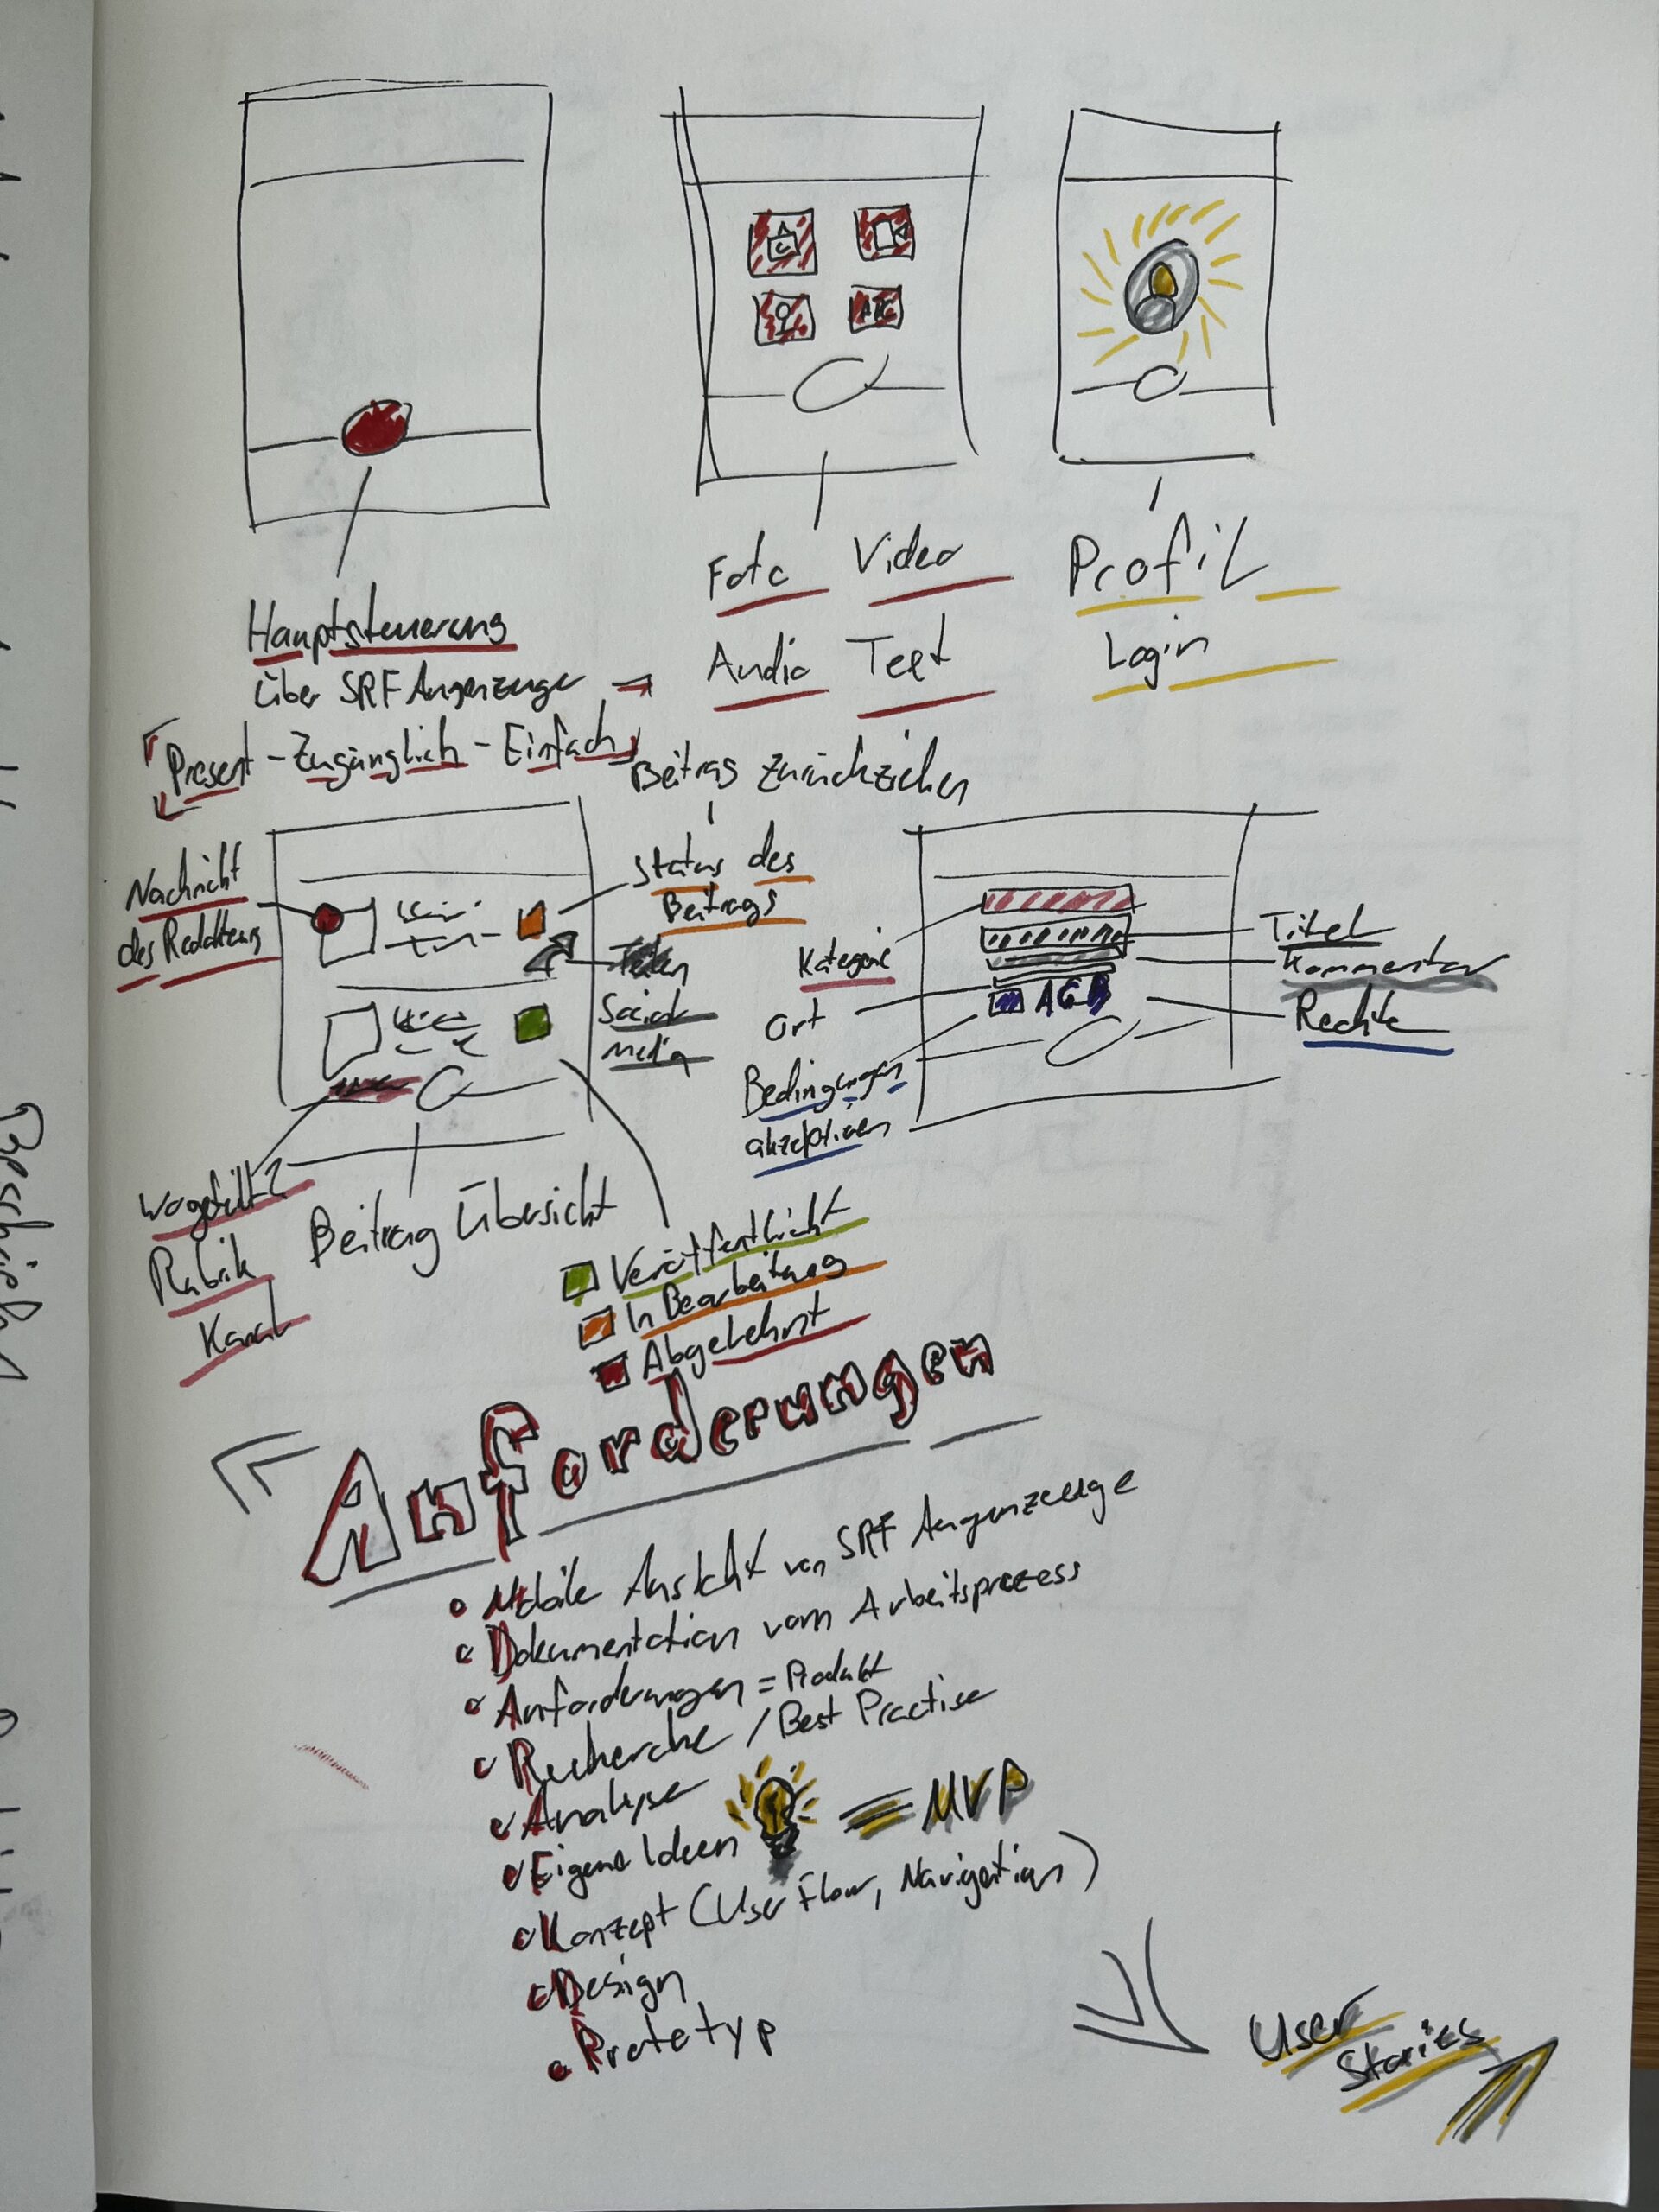 Hauptsteuerung
über SRF Augenzeuge →
Present - Zugänglich - Einfach
Foto Video
Audio Text
ABC
Profil
Login
Beitrag zurückziehen
Nachricht
des Redakteurs
Status des
Beitrags
Teilen
Social
Media
Wo gefällt?
Rubrik
Kanal
Beitrag Übersicht
Veröffentlicht
In Bearbeitung
Abgelehnt
Kategorie
Ort
Bedingungen
akzeptieren
AGB
Titel
Kommentar
Rechte
Anforderungen
• Mobile Ansicht von SRF Augenzeuge
• Dokumentation vom Arbeitsprozess
• Anforderungen = Produkt
• Recherche / Best Practise
• Analyse
• Eigene Ideen = MVP
• Konzept (User Flow, Navigation)
• Design
• Prototyp
User
Stories